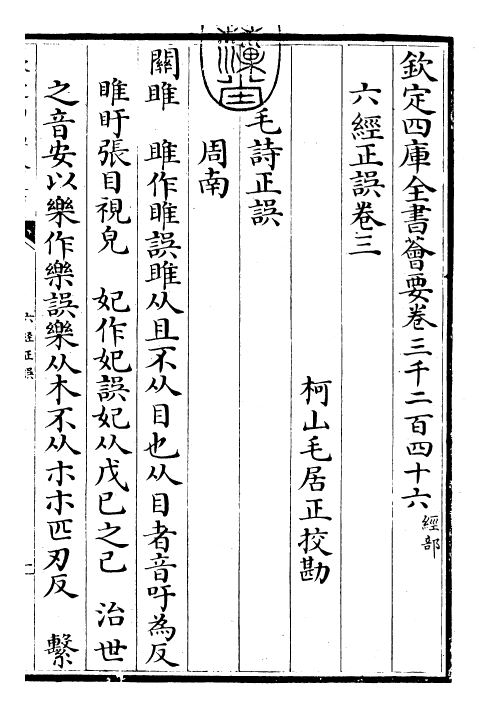 欽定四庫全書薈要卷三千二百四十六經部
六經正誤卷三
柯山毛居正挍勘
毛詩正誤
周南
關雎 雎作睢誤雎从且不从目也从目者音吁為反
睢盱張目視皃 妃作妃誤妃从戊已之已 治世
之音安以樂作樂誤樂从木不从朩朩匹刃反 繫
六經正誤